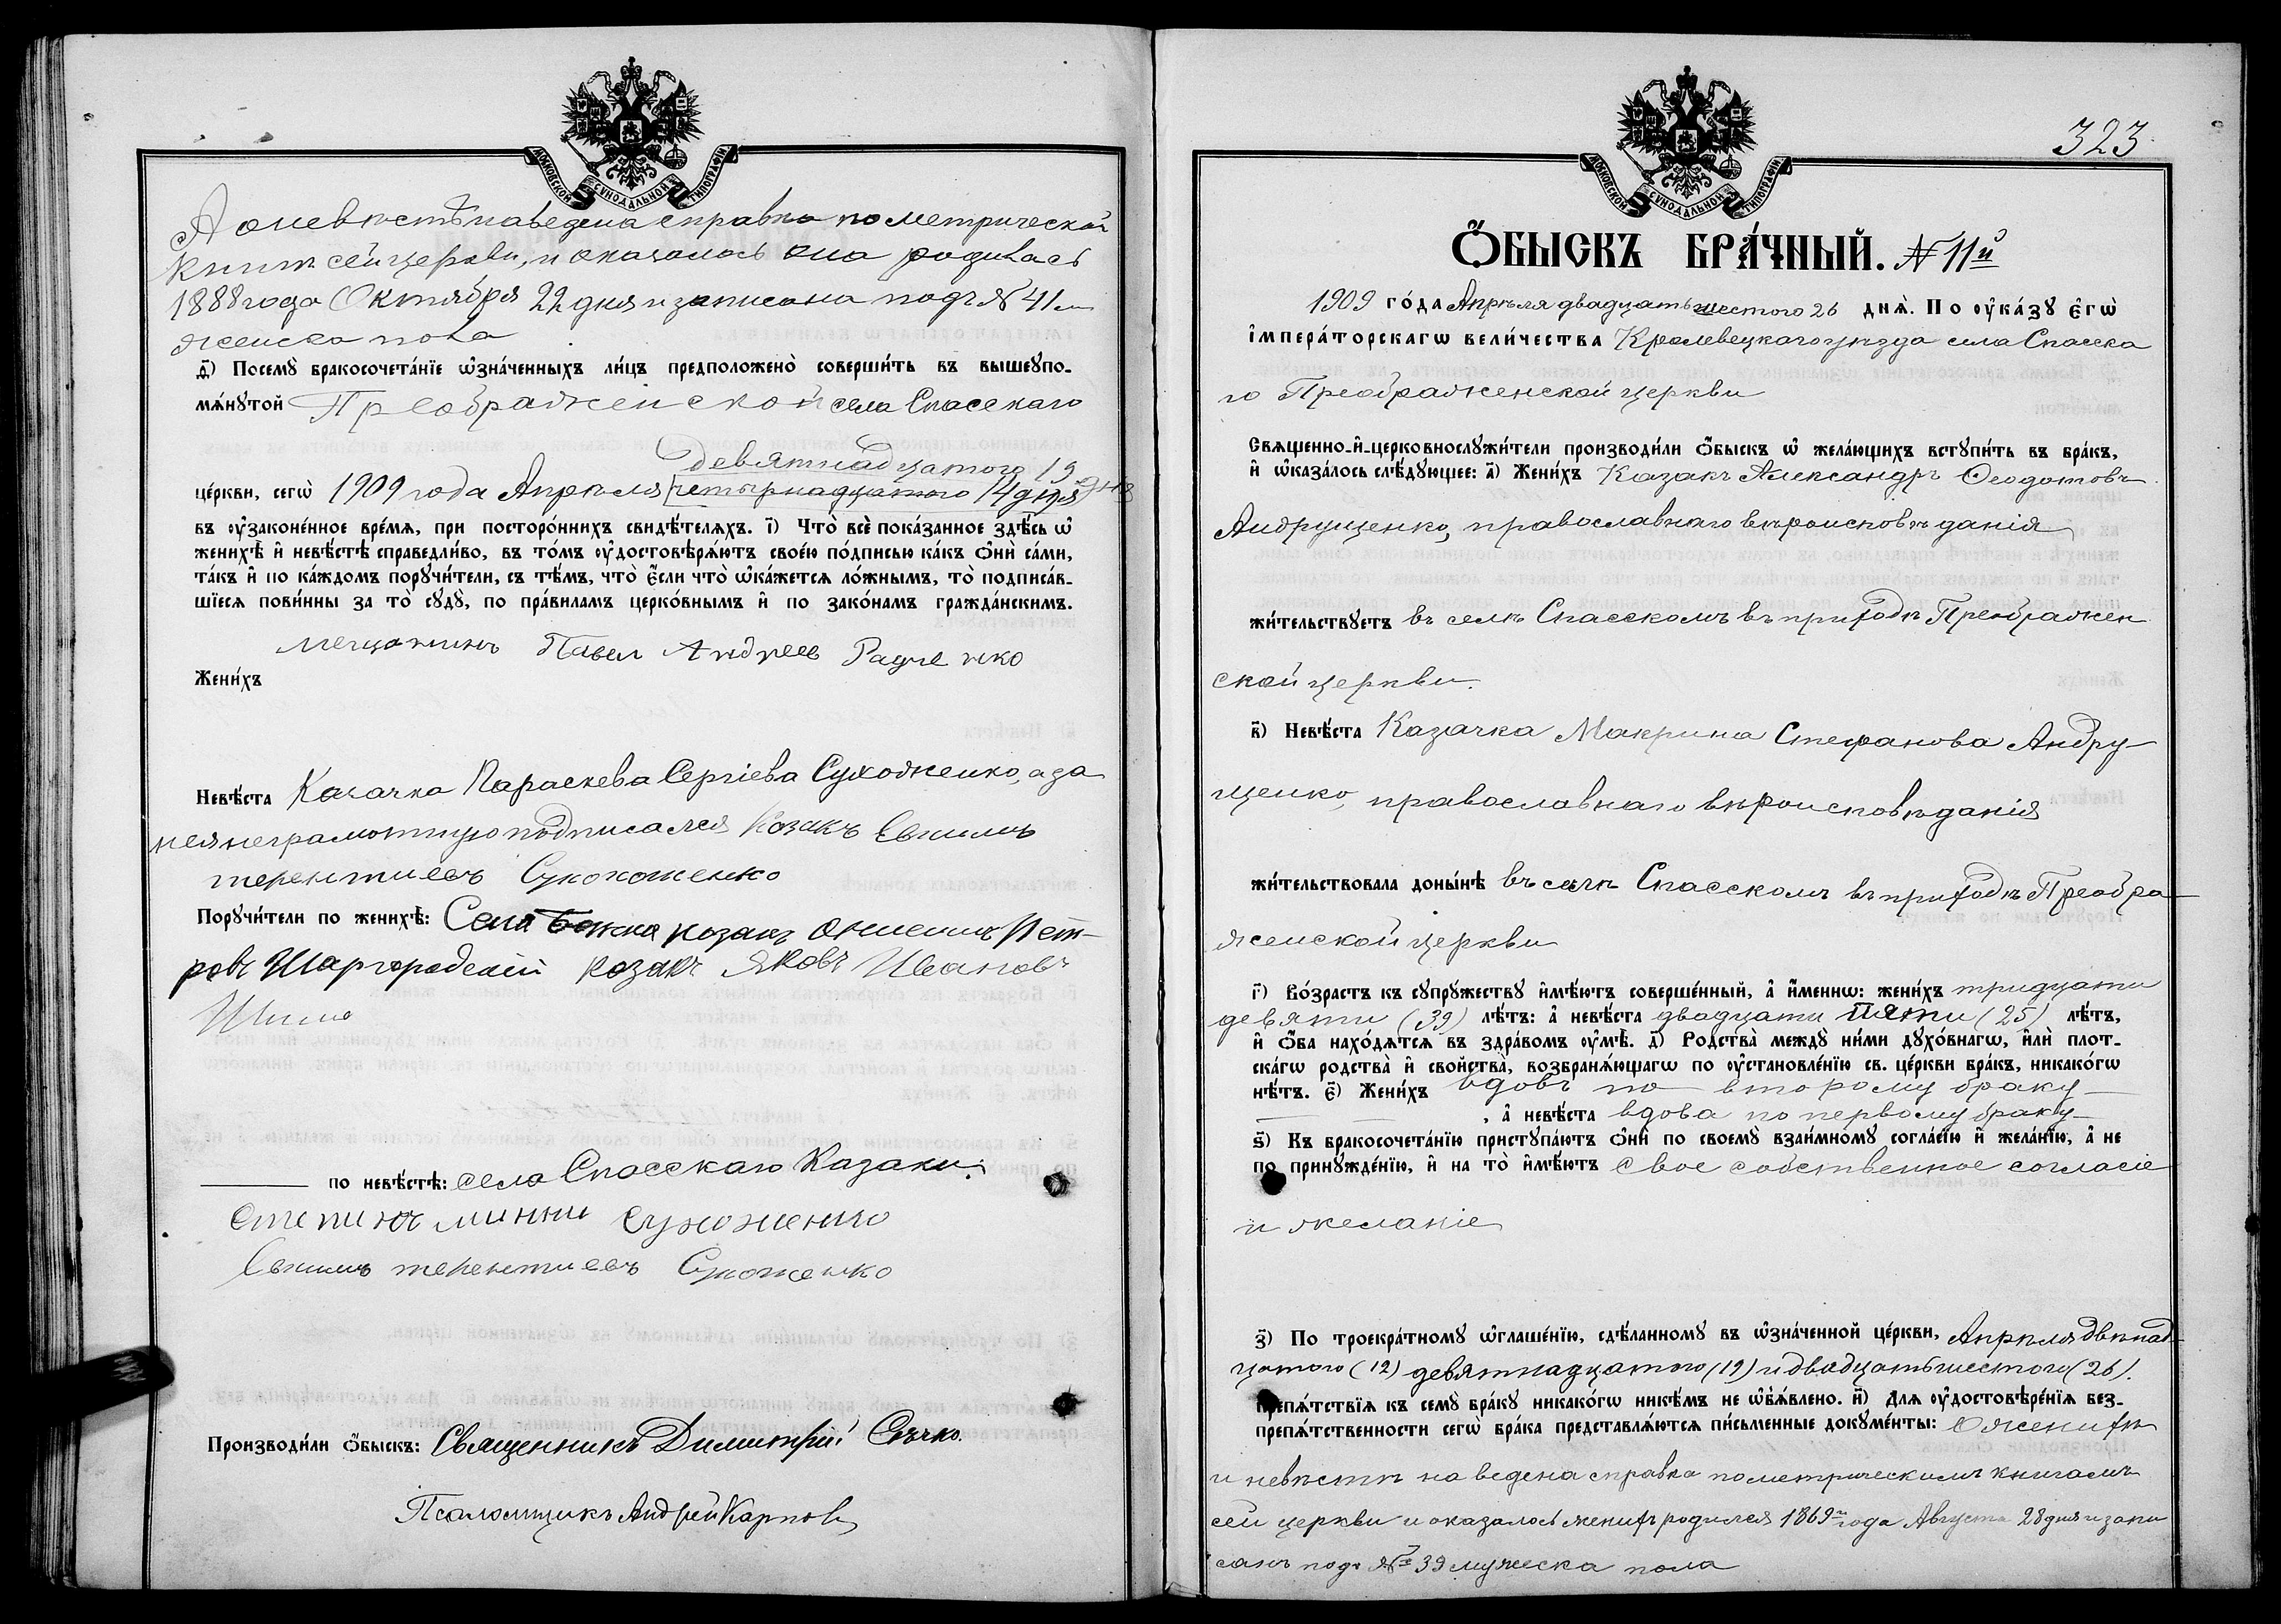 МОСКОВСКОЙ СѴНОДАЛЬНОЙ ТИПОГРАФІИ
А о невѣстѣ наведена справка по метрической
книгѣ сей церкви, и оказалось она родилась
1888 года Октября 22 дня и записана подъ № 41 м
женска пола
д҃і) Посемꙋ̀ бракосочета́нїе ѡ҆зна́ченныхъ ли́цъ предположено̀ соверши́ть въ вышеꙋпо-
мѧ́нꙋтой Преображенской села Спасскаго
девятнадцатого 19 дня
це́ркви, сегѡ̀ 1909 года Апрѣля четырнадцатого 14 дня
въ ᲂу҆законе́нное вре́мѧ, при посторо́ннихъ свидѣ́телѧхъ. і҃) Что̀ всѐ пока́занное здѣ́сь ѡ҆
женихѣ̀ и҆ невѣ́стѣ справедли́во, въ то́мъ ᲂу҆достовѣрѧ́ютъ свое́ю по́дписью ка́къ ѻ҆нѝ са́ми,
та́къ и҆ по ка́ждомъ порꙋчи́тели, съ тѣ́мъ, что̀ є҆́сли что̀ ѡ҆ка́жетсѧ ло́жнымъ, то̀ подписа́в-
шїесѧ пови́нны за то̀ сꙋдꙋ̀, по пра́виламъ церко́внымъ и҆ по зако́намъ гражда́нскимъ.
мещанинъ Павел Андреев Радченко
Жени́хъ
Невѣ́ста Казачка Параскева Сергіева Сухоженко, а за
нея неграмотную подписался Козакъ Евхимъ
терентиевъ Сухоженко
Порꙋчи́тели по женихѣ̀: Села козакъ Онисимъ Пет-
ровъ Шаргородскій козакъ Яковъ Ивановъ
по невѣ́стѣ: села Спасскаго Казаки:
Сухоженко
Евхимъ терентиевъ Сухоженко
Производи́ли ѻ҆́быскъ: Священникъ Димитрій Сѣчко.
Псаломщикъ Андрей Карповъ
323
МОСКОВСКОЙ СѴНОДАЛЬНОЙ ТИПОГРАФІИ
Ѻ҆́БЫСКЪ БРА́ЧНЫЙ. № 11й
1909 го́да Апрѣля двадцать шестого 26 днѧ̀. По ᲂу҆ка́зꙋ є҆гѡ̀
і҆мпера́торскагѡ вели́чества Кролевецкаго уѣзда села Спасска
го Преображенской церкви
Свѧщенно-и҆-церковнослꙋжи́тели производи́ли ѻ҆́быскъ ѡ҆ жела́ющихъ встꙋпи́ть въ бра́къ,
и҆ ѡ҆каза́лось слѣ́дꙋющее: а҃) Жени́хъ Казакъ Александръ Ѳеодотовъ
Андрущенко, православнаго вѣроисповѣданія
жи́тельствꙋетъ въ селѣ Спасскомъ въ приходѣ Преображен
ской церкви.
в҃) Невѣ́ста Казачка Макрина Стефанова Андру-
щенко, православнаго вѣроисповѣданія
жи́тельствовала доны́нѣ въ селѣ Спасскомъ въ приходѣ Преобра-
женской церкви
г҃) Во́зрастъ къ сꙋпрꙋжествꙋ и҆мѣ́ютъ соверше́нный, а҆ и҆́меннѡ: жени́хъ тридцати
девяти (39) лѣ́тъ: а҆ невѣ́ста двадцати пяти (25) лѣ́тъ,
и҆ ѻ҆́ба нахо́дѧтсѧ въ здра́вомъ ᲂу҆мѣ̀. д҃) Родства̀ междꙋ ни́ми дꙋхо́внагѡ, и҆лѝ плот-
ска́гѡ родства̀ и҆ свойства̀, возбранѧ́ющагѡ по ᲂу҆становле́нїю св. це́ркви бра́къ, никако́гѡ
нѣ́тъ. є҃) Жени́хъ вдовъ по второму браку
, а҆ невѣ́ста вдова по первому браку
ѕ҃) Къ бракосочета́нїю пристꙋпа́ютъ ѻ҆нѝ по своемꙋ̀ взаи́мномꙋ согла́сїю и҆ жела́нїю, а҆ не
по принꙋжде́нїю, и҆ на то̀ и҆мѣ́ютъ свое собственное согласіе
и желаніе
з҃) По троекра́тномꙋ ѡ҆глаше́нїю, сдѣ́ланномꙋ въ ѡ҆зна́ченной це́ркви, Апрѣля двѣнад-
цатого (12) девятнадцатого (19) и двадцать шестого (26).
препѧ́тствїѧ къ семꙋ̀ бра́кꙋ никако́гѡ никѣ́мъ не ѡ҆б̾ѧ́влено. и҃) Длѧ ᲂу҆достовѣре́нїѧ без-
препѧ́тственности сегѡ̀ бра́ка представлѧ́ютсѧ пи́сьменные докꙋме́нты: О женихѣ
и невѣстѣ наведена справка по метрическимъ книгамъ
сей церкви и оказалось женихъ родился 1869го года Августа 28 дня и запи
санъ подъ № 39 мужеска пола